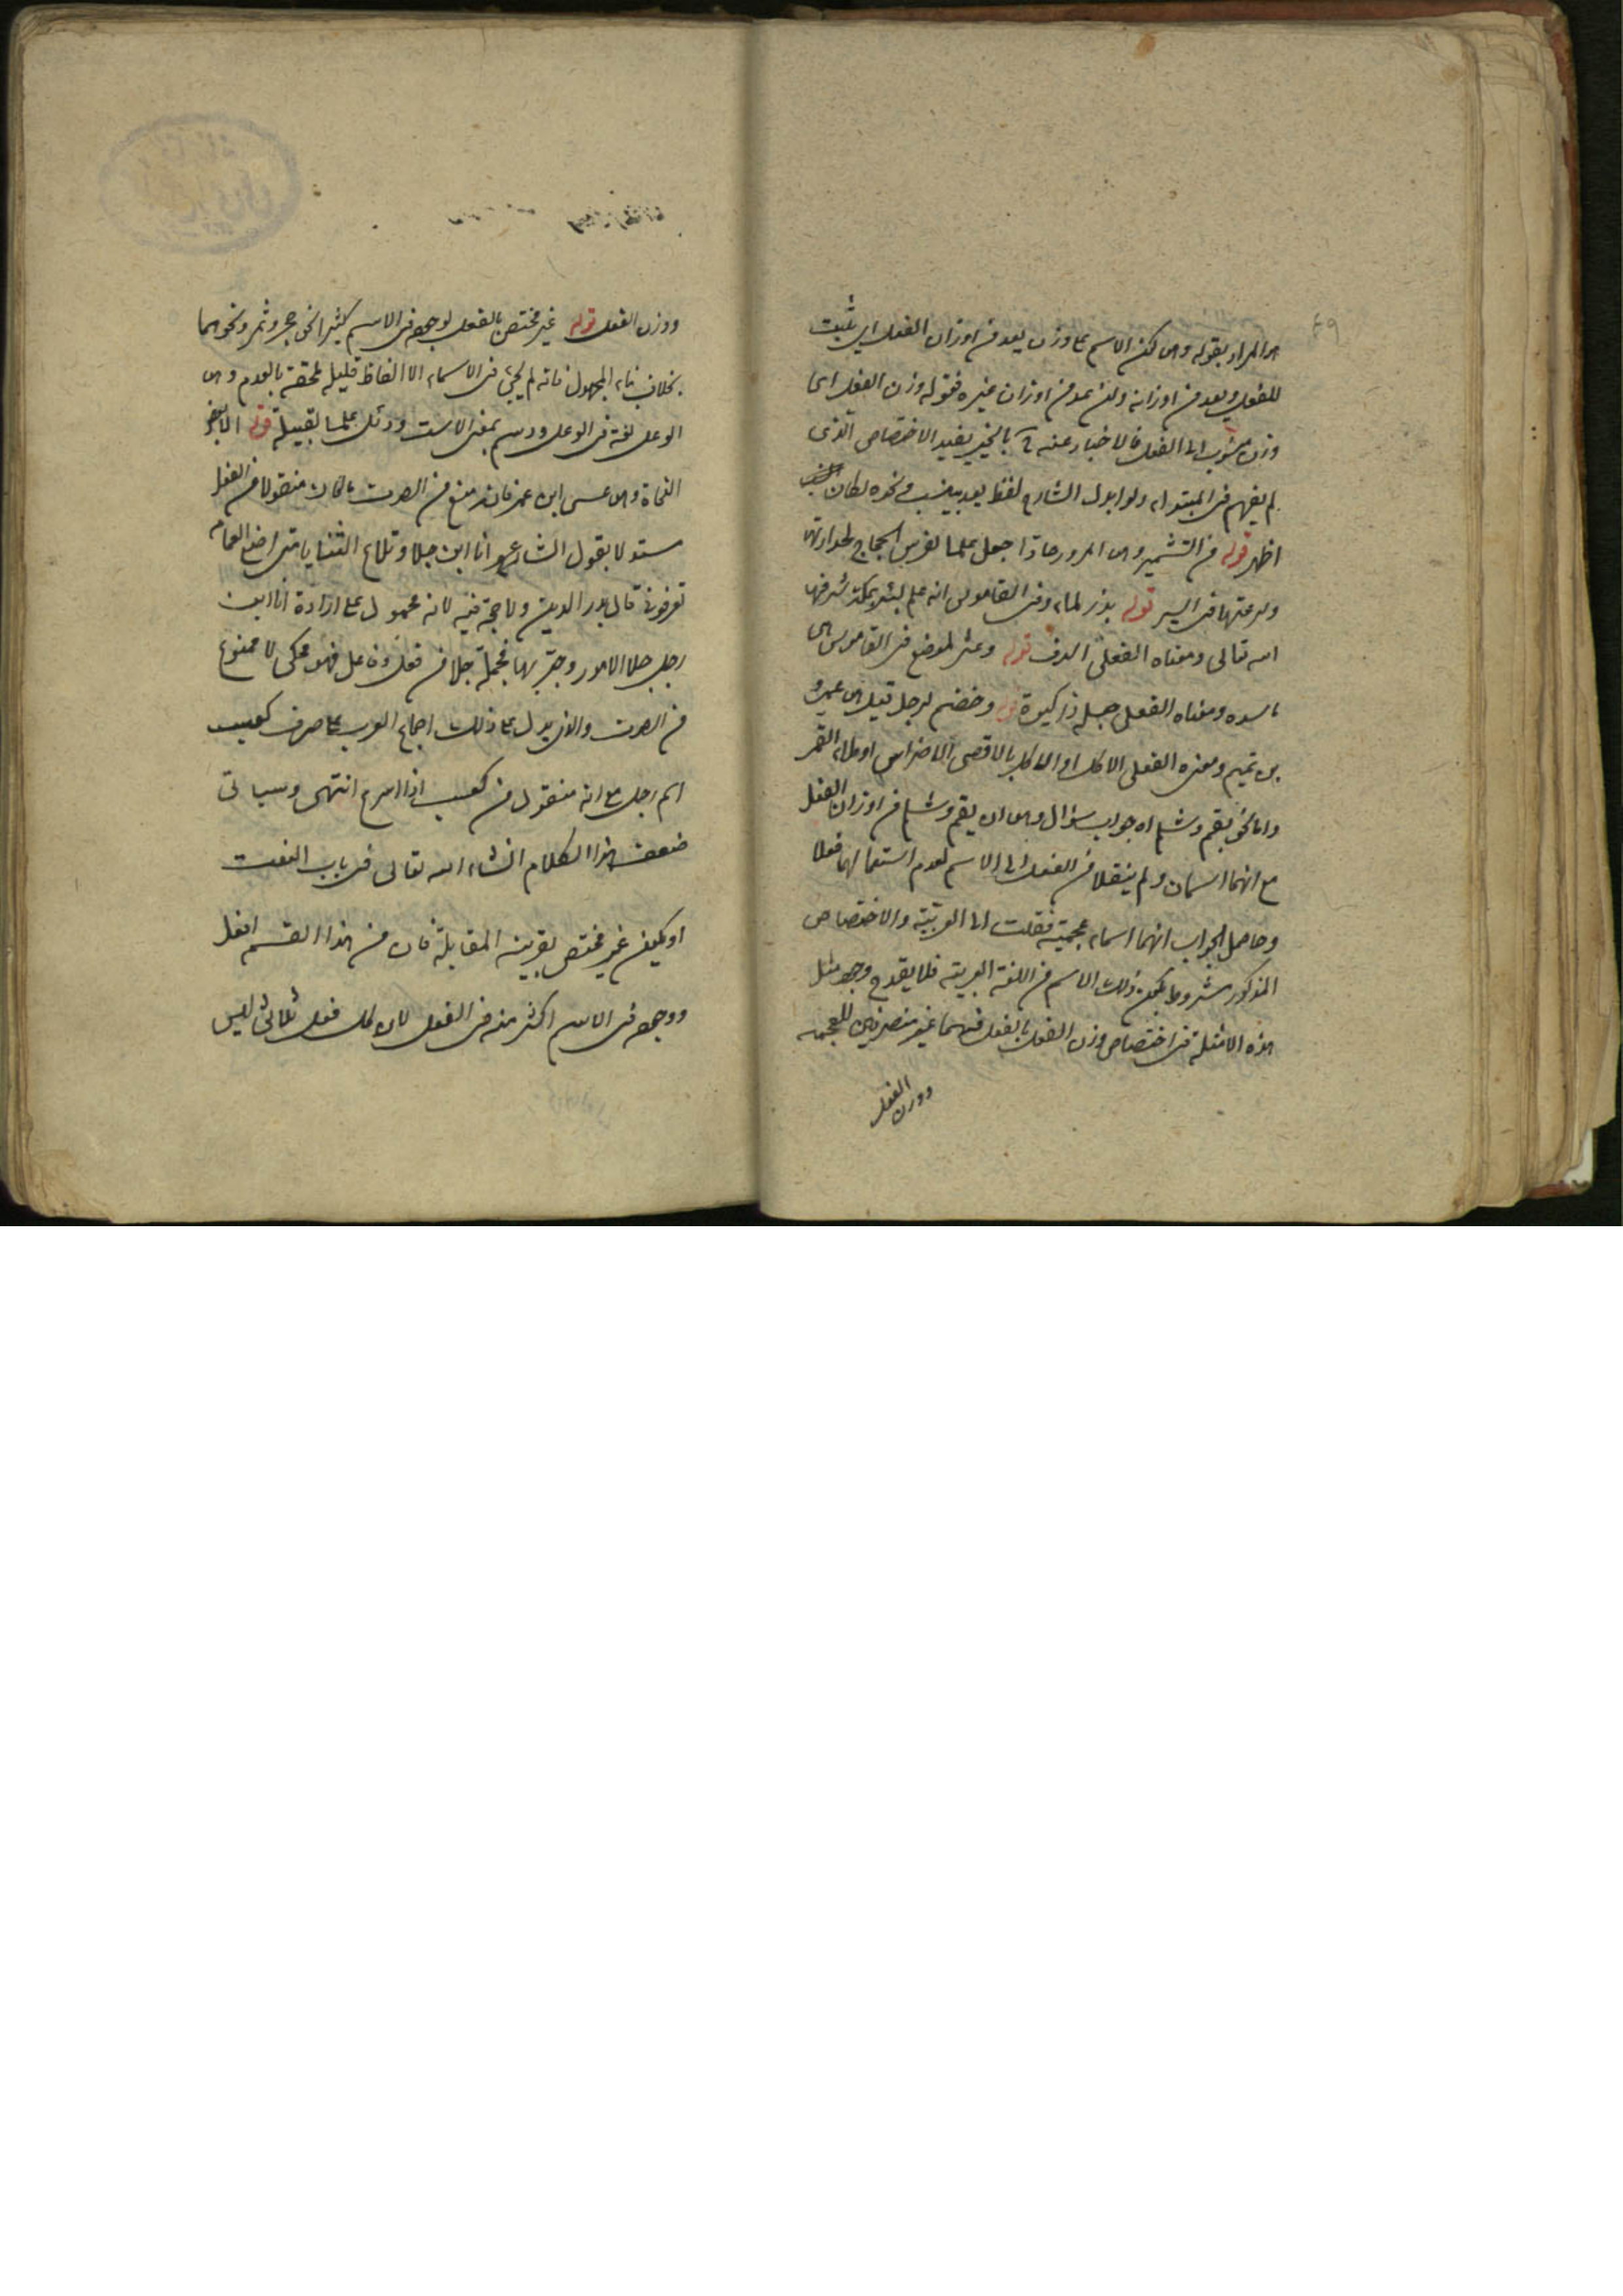 ٤٩
المراد بقوله وهي كون الاسم على وزن يعد من اوزان الفعل اي يثبت
للفعل ويعد من اوزانه ولن يعد من اوزان غيره فقوله وزن الفعل اي
وزن منسوب الى الفعل فالاخبار عنه بالخبر يفيد الاختصاص الذي
لم يفهم من المبتدا ولو ابدل الشارح لفظ يعد بينسب ونحوه لكان
اظهر قوله من التشمير وهي المرور جادا جعل علما لفرس الحجاج لحدادتها
وسرعتها في السير قوله بذر لماء وفي القاموس انه علم لبئر بمكة شرفها
الله تعالى ومعناه الفعلي قوله وعثر لموضع في القاموس
ماسدة ومعناه الفعلي قوله وخضم لرجل قيل هي عمرو
بن تميم ومعناه الفعلي الاكل او الاكل باقصى الاضراس
واما نحو بقم وشلم اه جواب سؤال وهي ان بقم وشلم من اوزان الفعل
مع انهما اسمان ولم ينقلا من الفعل الى الاسم لعدم استعمالهما فعلا
وحاصل الجواب انهما اسماء عجمية نقلت الى العربية والاختصاص
المذكور مشروط بكون ذلك الاسم من اللغة العربية فلا يقدح وجود مثل
هذه الامثلة في اختصاص وزن الفعل بالفعل فهما غير منصرفين للعجمة
ووزن الفعل
ووزن الفعل قوله غير مختص بالفعل لوجوده في الاسم كثيرا نحو حجر وثمر ونحوهما
بخلاف بناء المجهول فانه لم يجئ في الاسماء الا الفاظ قليلة ملحقة بالعدم وهي
الوعل لغة في الوعل ودئم بمعنى الاست ودئل علما لقبيلة قوله لبعض
النحاة وهي عيسى ابن عمر فانه منع من الصرف ما كان منقولا من الفعل
مستدلا بقول الشاعر انا ابن جلا وطلاع الثنايا متى اضع العمامة
تعرفوني قال بدر الدين ولا حجة فيه لانه محمول على ارادة انا ابن
رجل جلا الامور وجربها فجملة جلا من فعل وفاعل فهو محكي لا ممنوع
من الصرف والذي يدل على ذلك اجماع العرب على صرف كعسب
اسم رجل مع انه منقول من كعسب اذا اسرع انتهى وسياتي
ضعف هذا الكلام انشاء الله تعالى في باب النعت
او يكون غير مختص بقرينة المقابلة فان من هذا القسم افعل
ووجوده في الاسم اكثر منه في الفعل لان كل فعل ثلاثي ليس